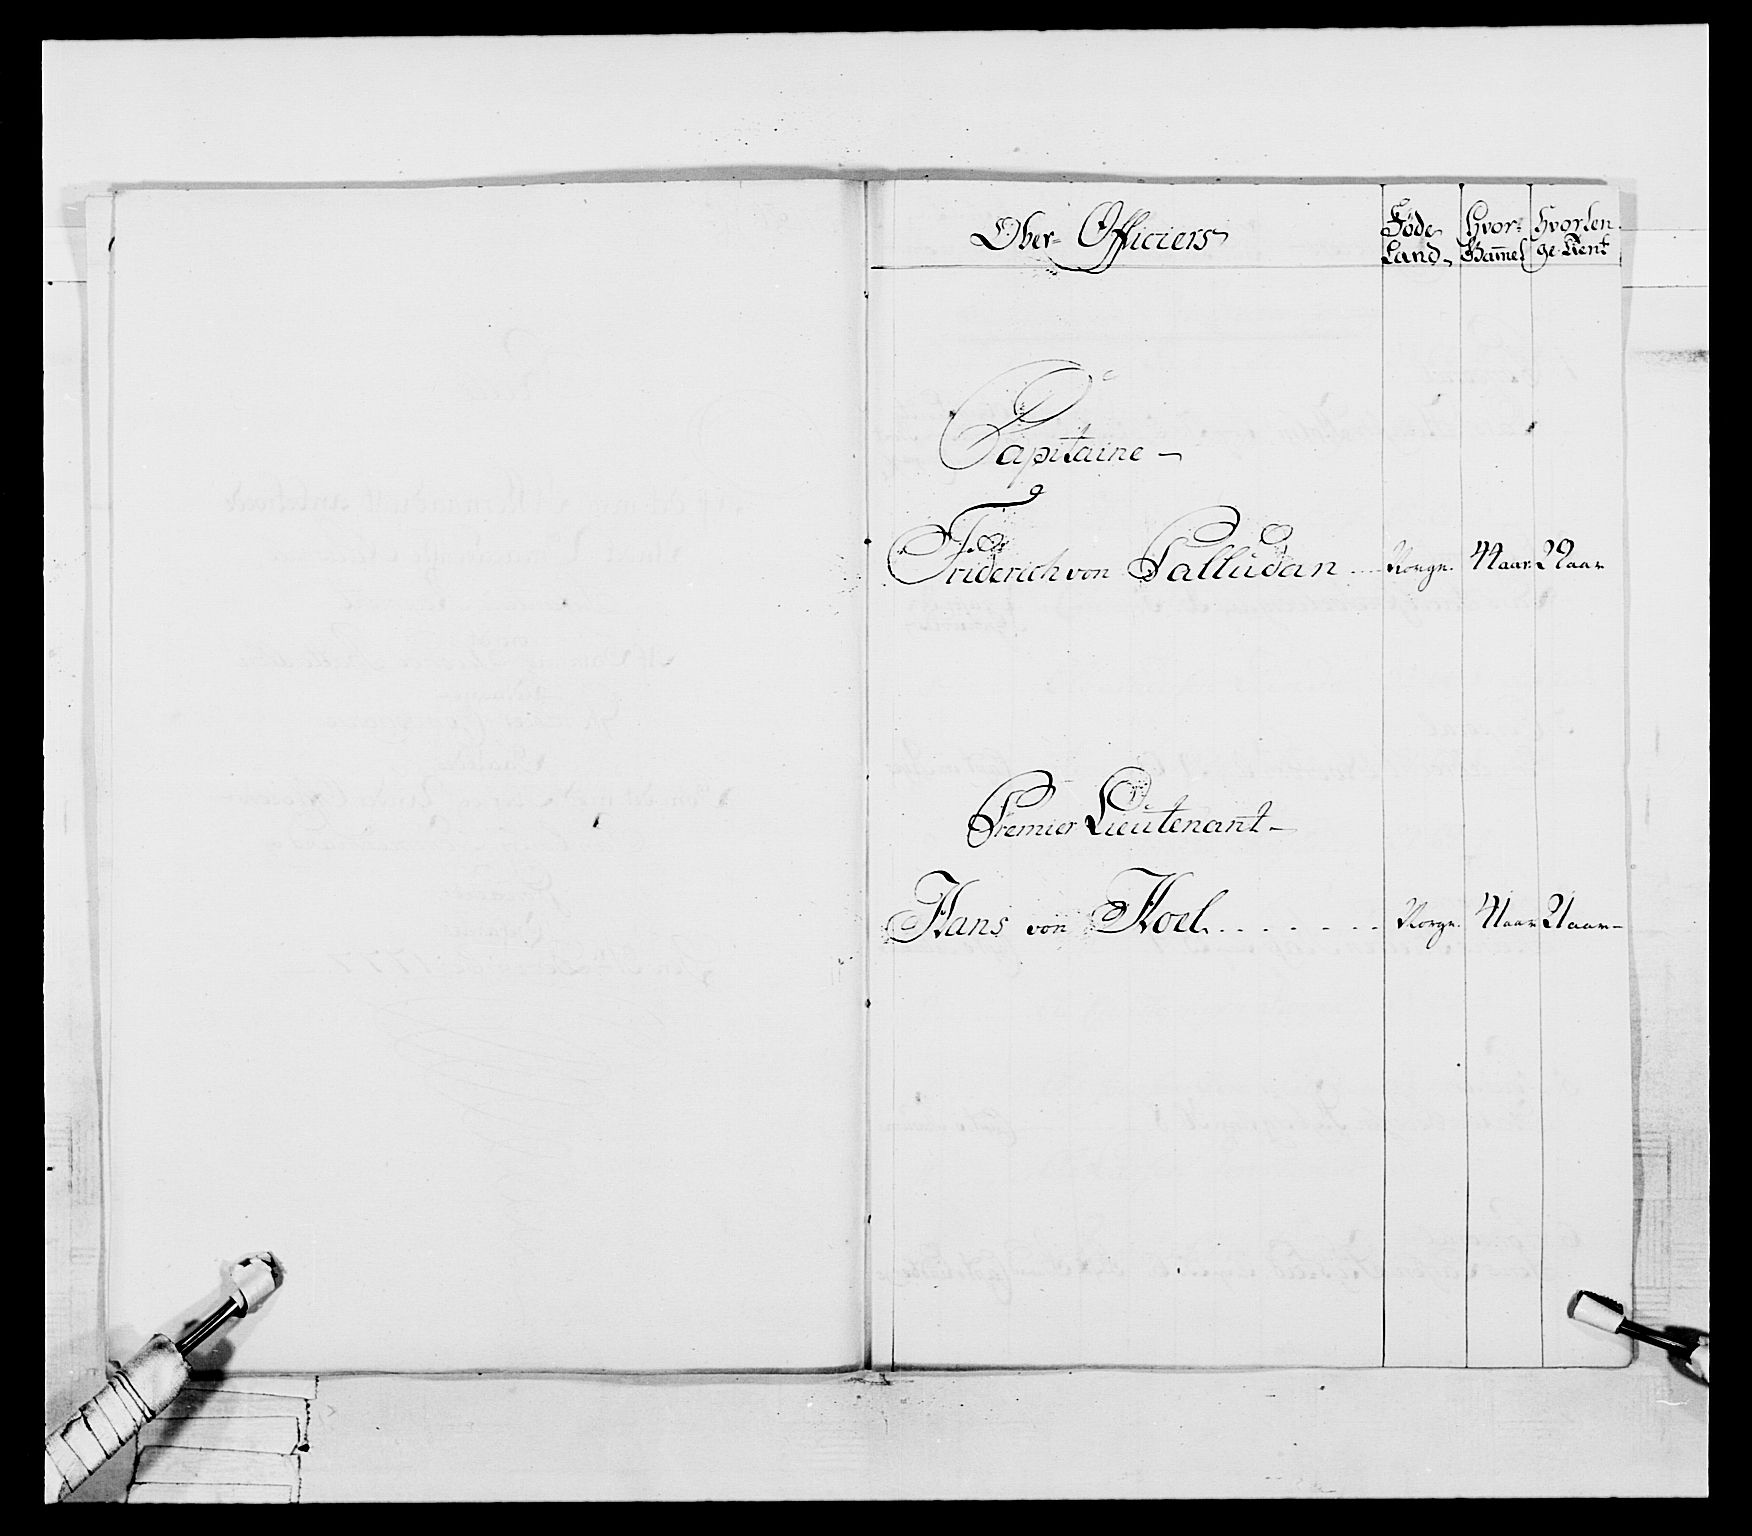 Ober- Officiers
Føde Land
Hvor Gamel
Hvor lenge tient
Capitaine
Friderich von Palludan Norge. 44 aar 29 aar
Premier Lieutenant
Hans von Koel. Norge. 41 aar 21 aar